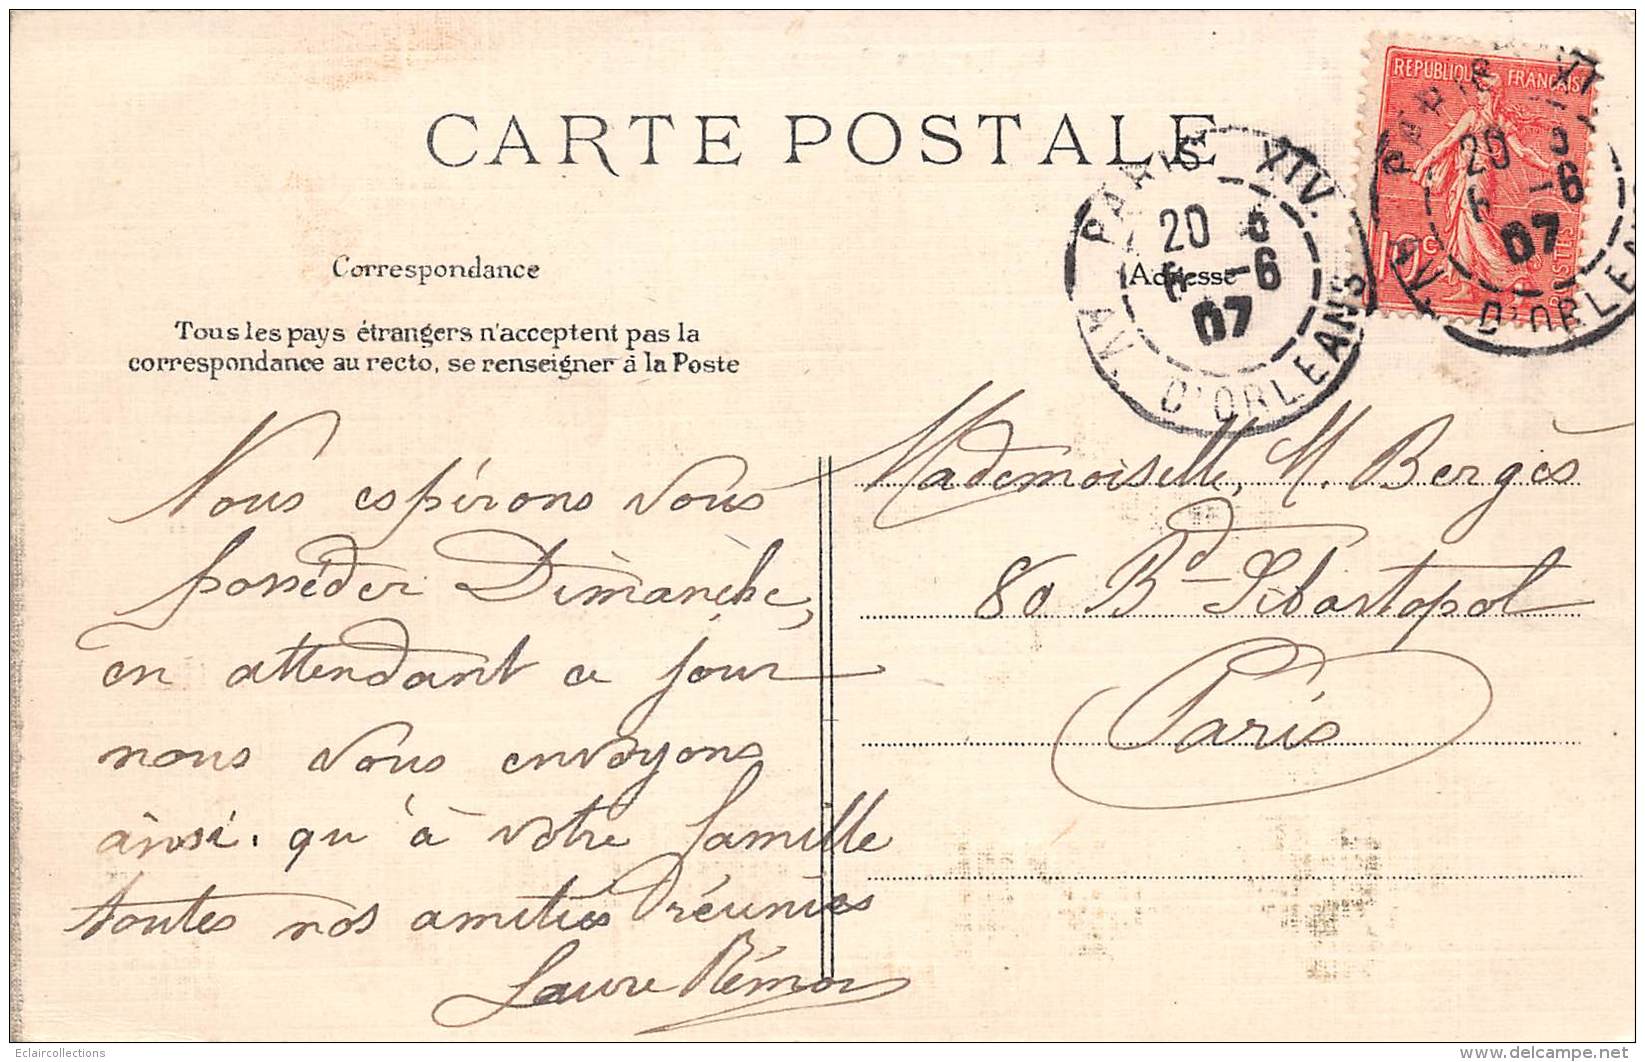 CARTE POSTALE
REPUBLIQUE FRANÇAISE
10c
POSTES
PARIS XIV
20
6 -6
07
AV. D'ORLEANS
PARIS XIV.
20
6 -6
07
AV. D'ORLEANS
Correspondance
Adresse
Tous les pays étrangers n'acceptent pas la
correspondance au recto, se renseigner à la Poste
Nous espérons vous
posséder Dimanche,
en attendant ce jour
nous vous envoyons
ainsi. qu'à votre famille
toutes nos amitiés réunies
Laure Rémon
Mademoiselle, M. Bergès
80 Bd Sébastopol
Paris
Eclaircollections
delcampe.net